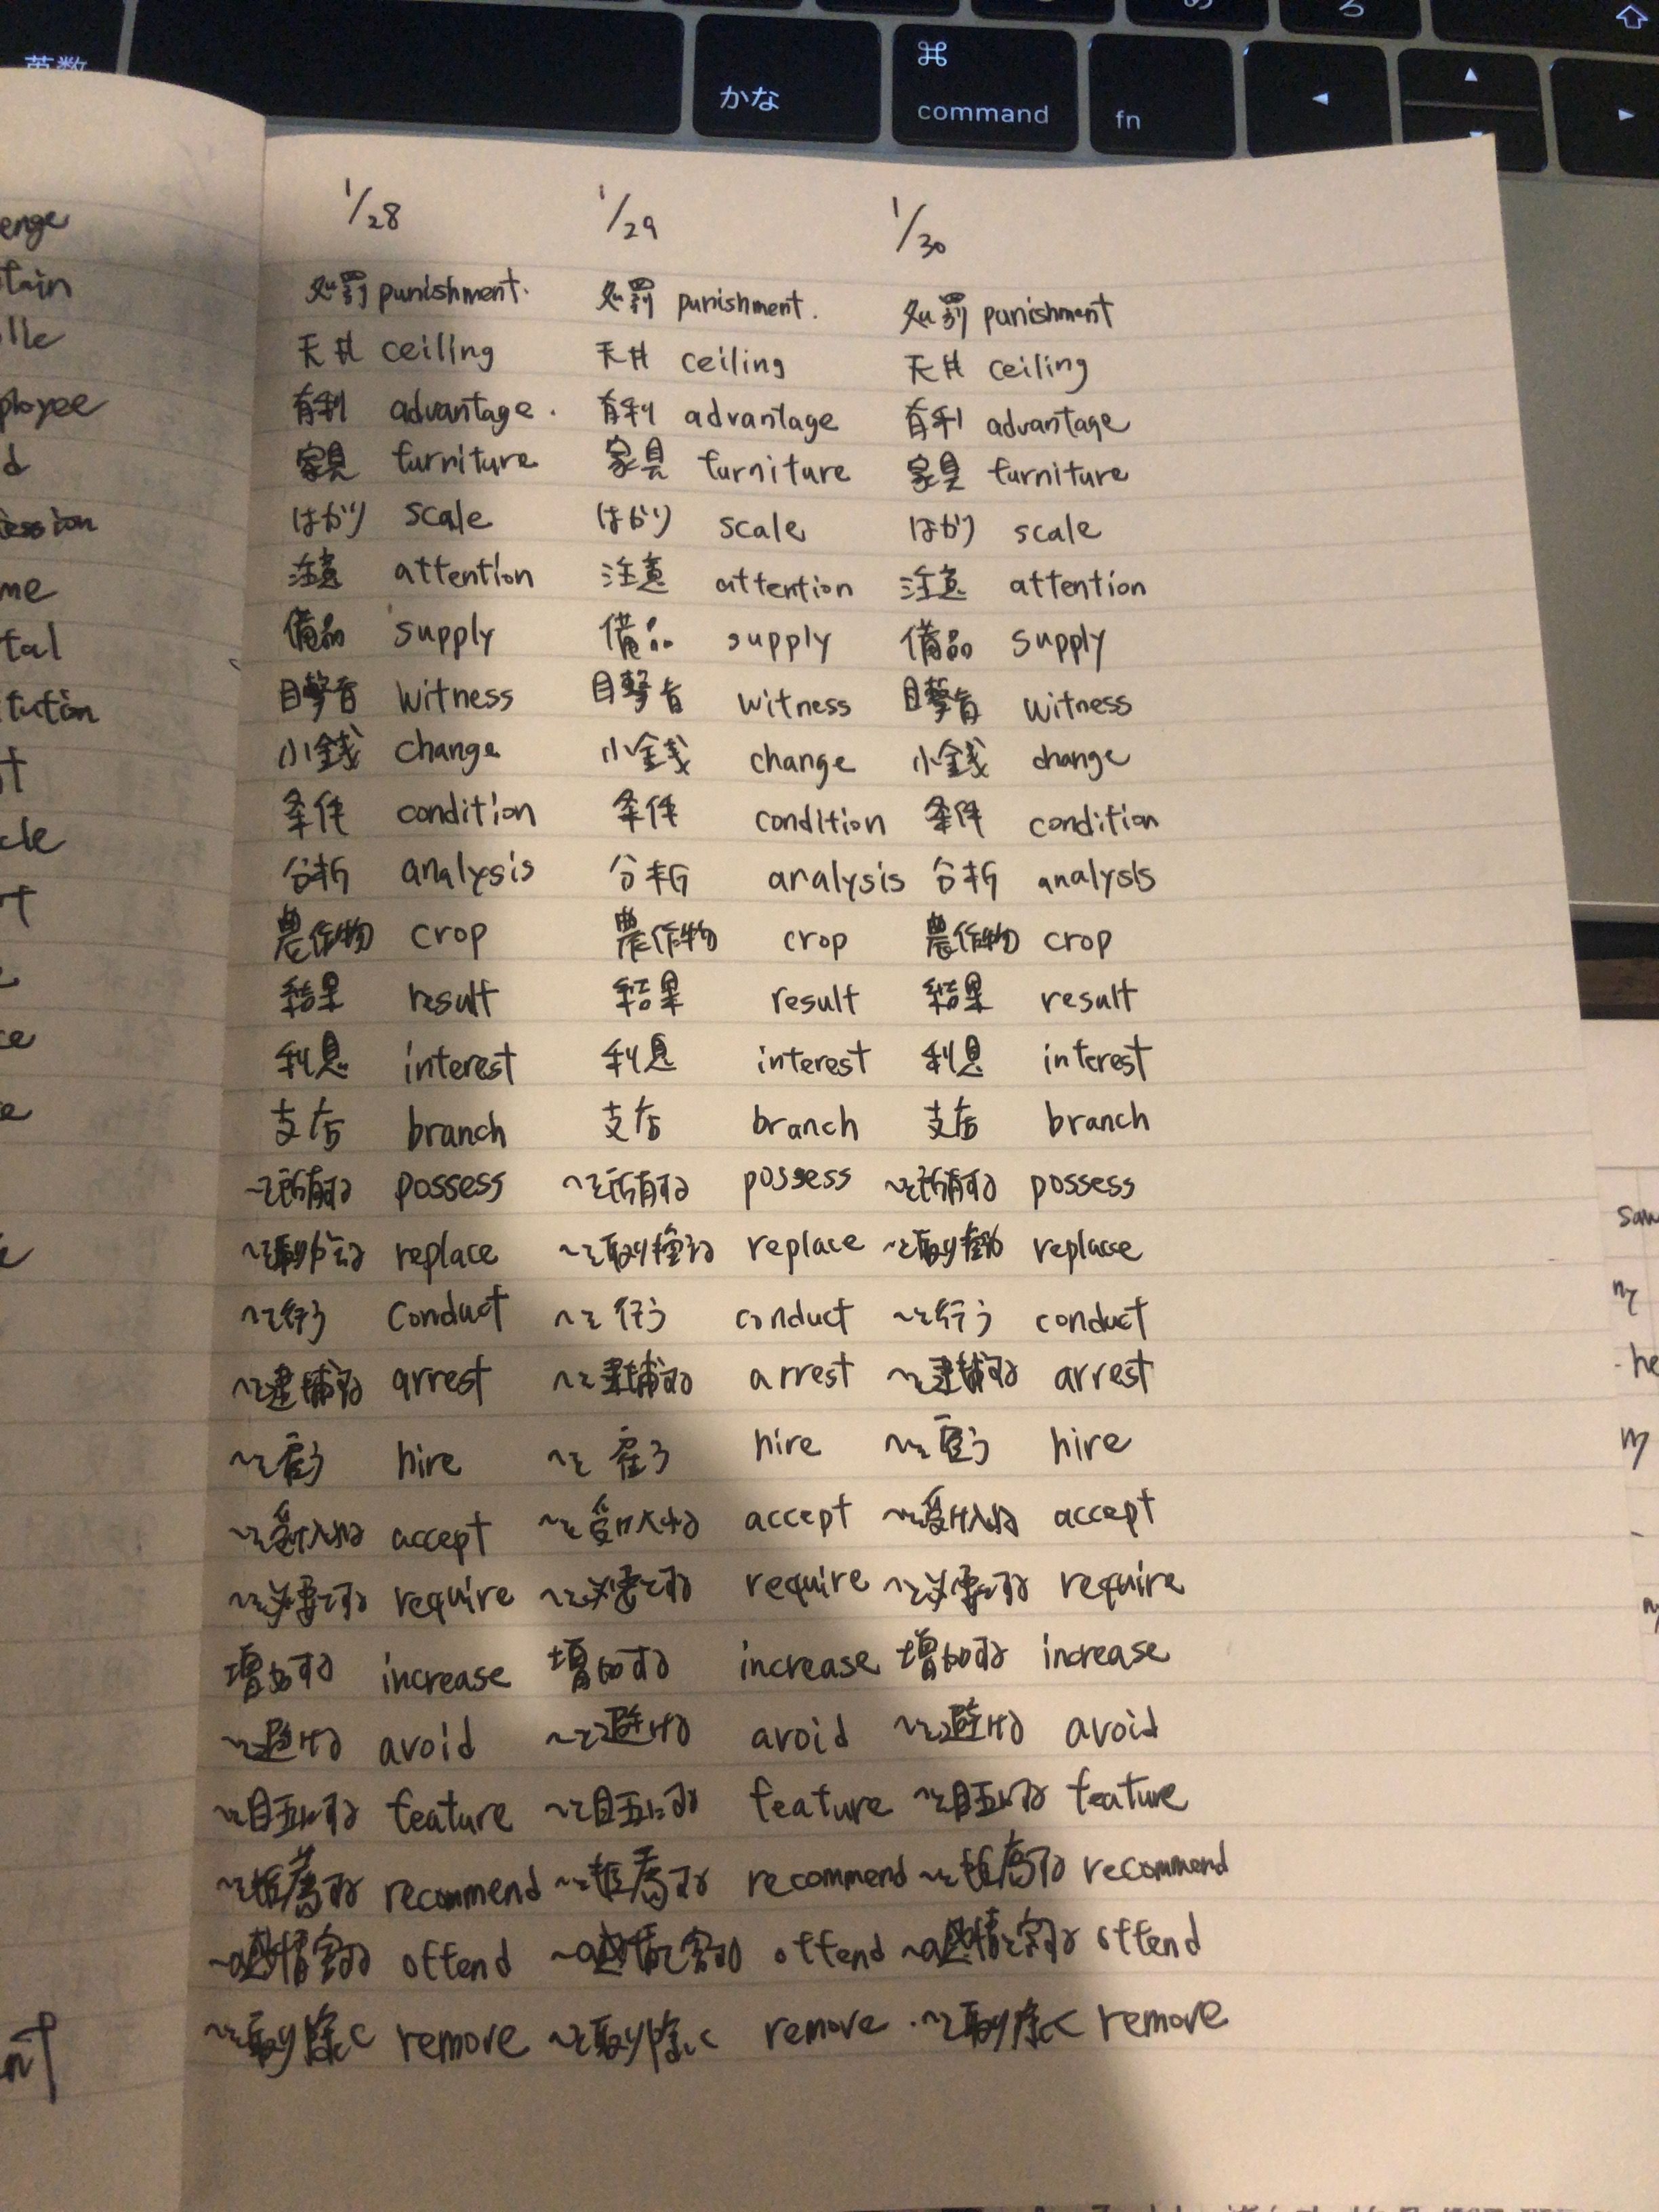 め ろ
英数 かな ⌘ command fn
1/28 1/29 1/30
処罰 punishment. 処罰 punishment. 処罰 punishment
天井 ceiling 天井 ceiling 天井 ceiling
有利 advantage. 有利 advantage 有利 advantage
家具 furniture 家具 furniture 家具 furniture
はかり scale はかり scale はかり scale
注意 attention 注意 attention 注意 attention
備品 supply 備品 supply 備品 supply
目撃者 witness 目撃者 witness 目撃者 witness
小銭 change 小銭 change 小銭 change
条件 condition 条件 condition 条件 condition
分析 analysis 分析 analysis 分析 analysis
農作物 crop 農作物 crop 農作物 crop
結果 result 結果 result 結果 result
利息 interest 利息 interest 利息 interest
支店 branch 支店 branch 支店 branch
〜を所有する possess 〜を所有する possess 〜を所有する possess
replace replace replace
〜を行う conduct 〜を行う conduct 〜を行う conduct
〜を逮捕する arrest 〜を逮捕する arrest 〜を逮捕する arrest
〜を雇う hire 〜を雇う hire 〜を雇う hire
〜を受け入れる accept 〜を受け入れる accept 〜を受け入れる accept
〜を必要とする require 〜を必要とする require 〜を必要とする require
増加する increase 増加する increase 増加する increase
〜を避ける avoid 〜を避ける avoid 〜を避ける avoid
feature feature feature
〜を推薦する recommend 〜を推薦する recommend 〜を推薦する recommend
〜の感情を害する offend 〜の感情を害する offend 〜の感情を害する offend
〜を取り除く remove 〜を取り除く remove 〜を取り除く remove